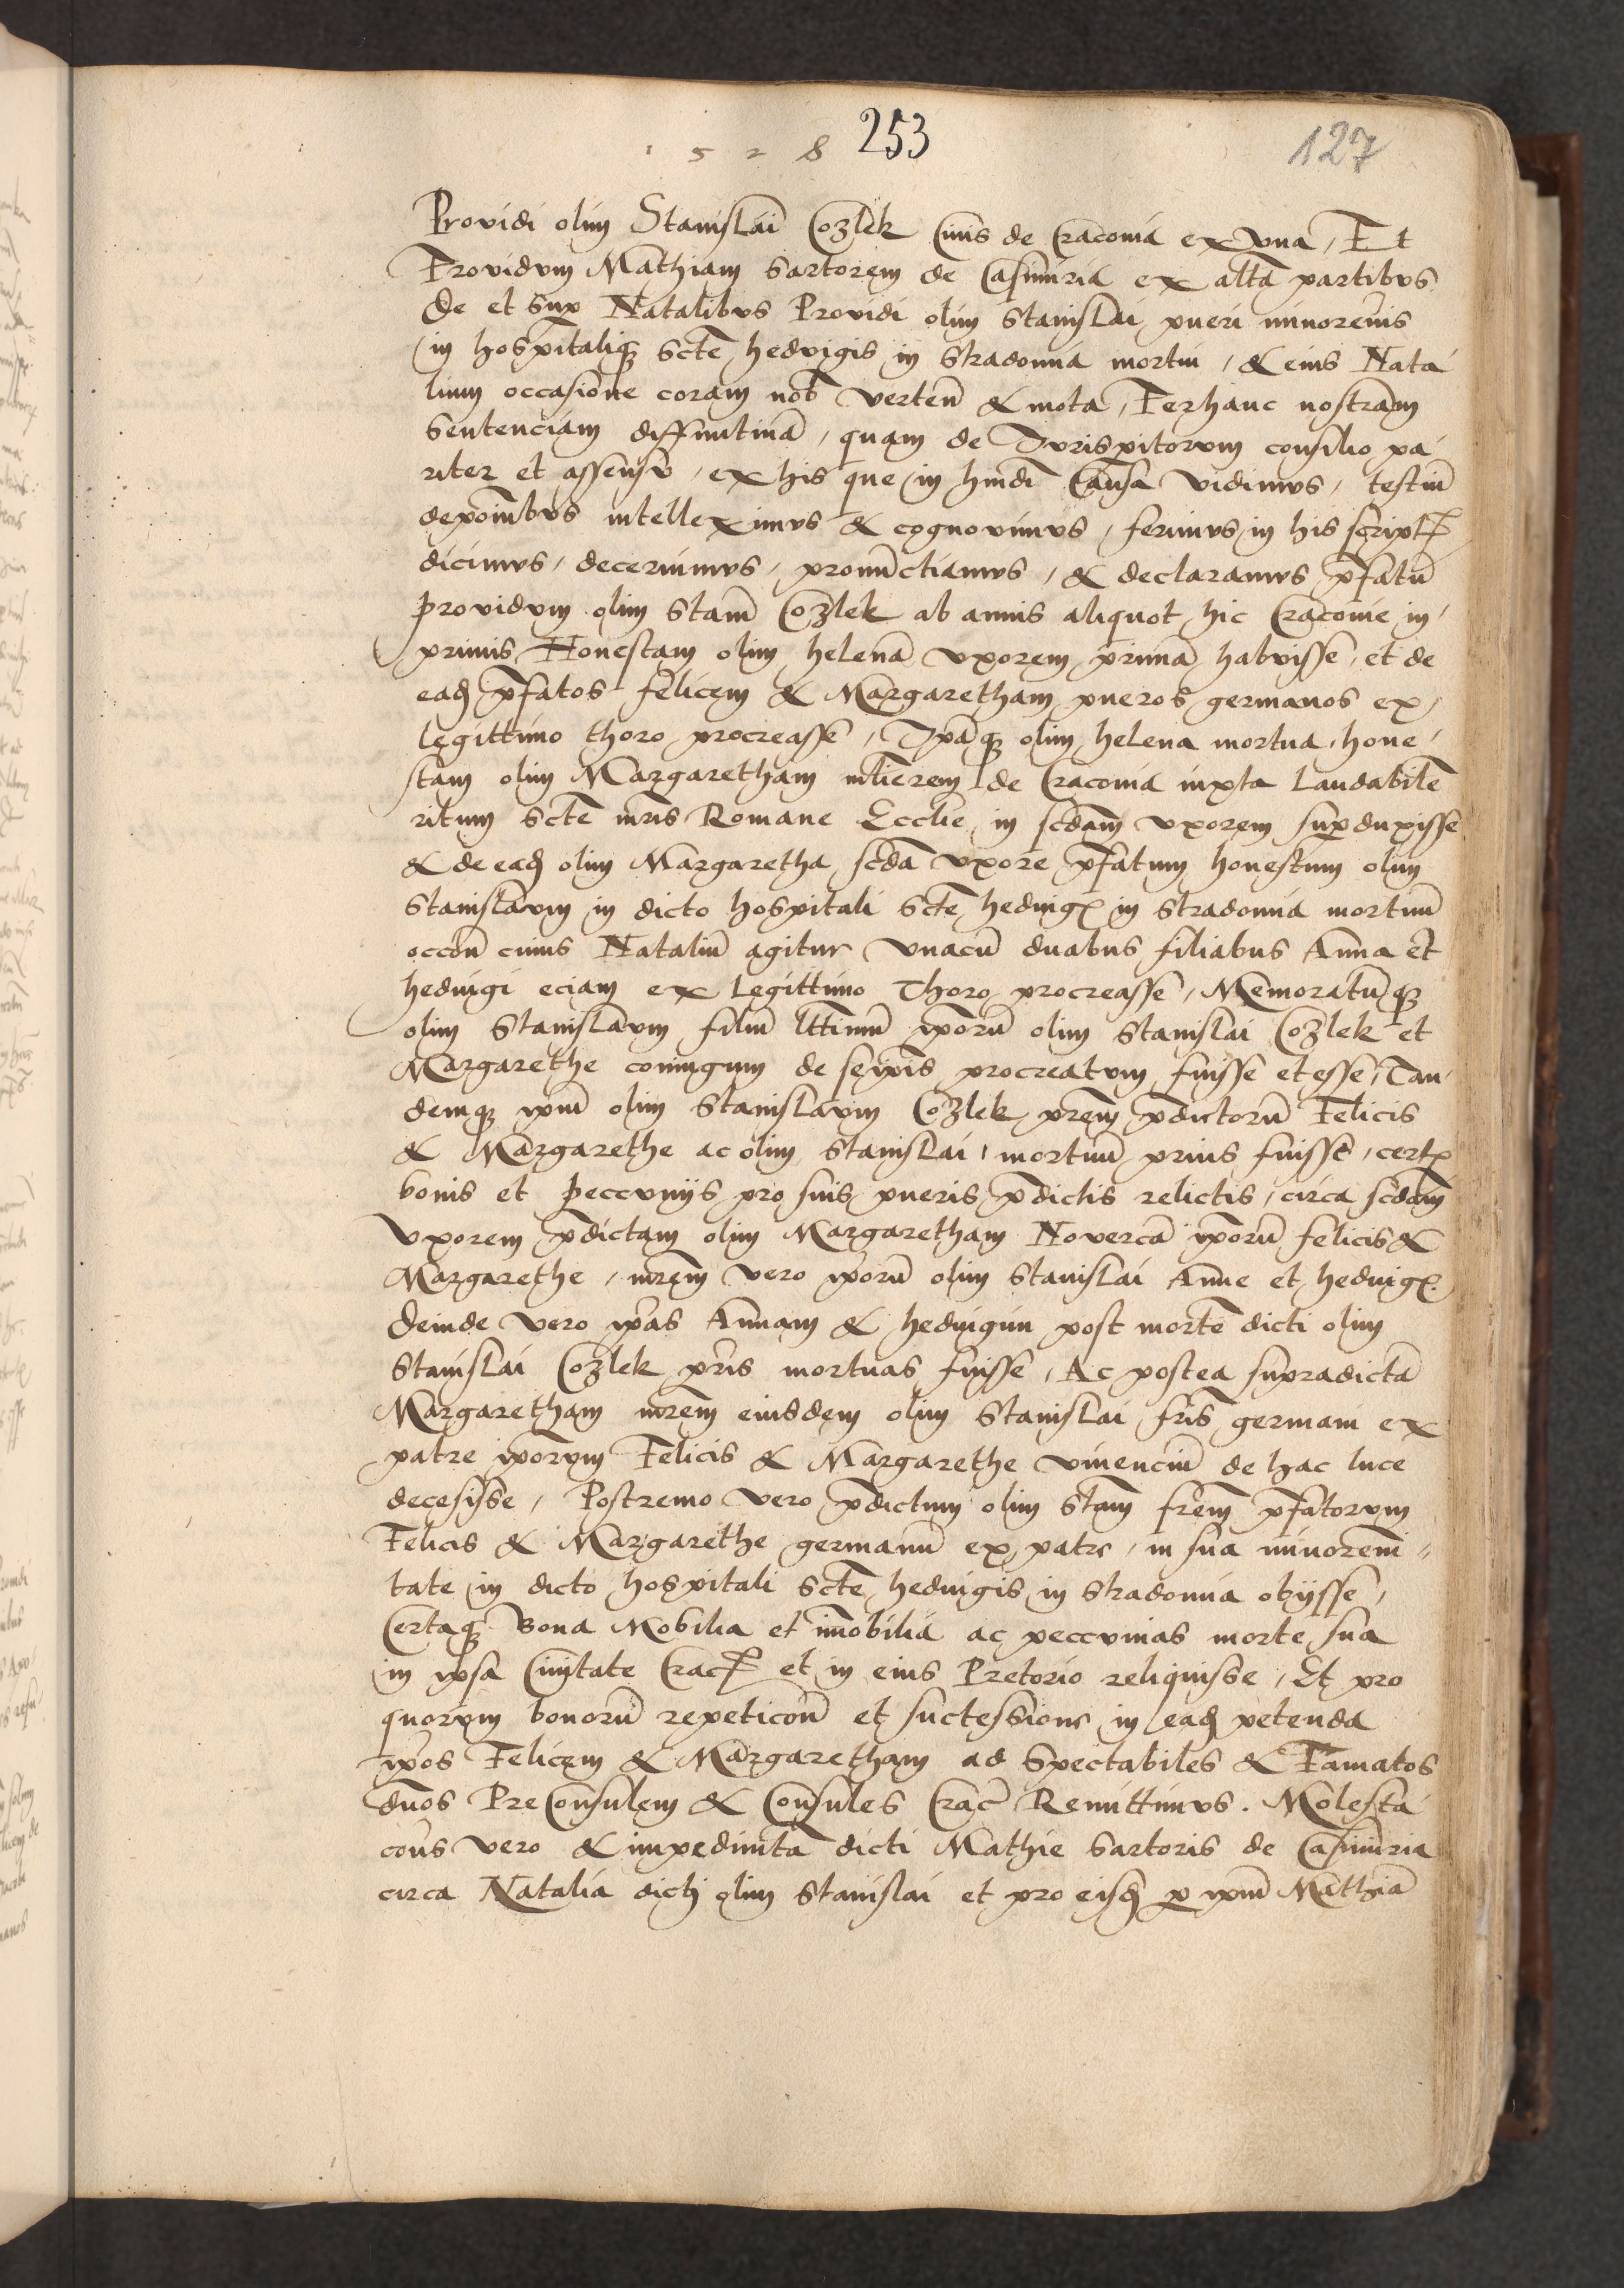 1528 253 127
Providi olim Stanislai Cozlek Civis de Cracovia ex vna, Et
Providum Mathiam Sartorem de Casimiria ex alta partibus
De et sup Natalibus Providi olim Stanislai pueri minorenis
in hospitaliq3 Scte hedvigis in Stradomia mortui, & eius Nata
lium occasione coram nob verten & mota, Per hanc nostram
Sentenciam diffinitiva, quam de Jurispitorum consilio pa
riter et assensu, ex his que in hmdi Causa vidimus, testiu
depoinibus intelleximus & cognovimus, ferimus in his script
dicimus, decernimus, pronunctiamus, & declaramus pfatu
providum olim Stam Cozlek ab annis aliquot hic Cracovie in
primis Honestam olim helena vxorem prima habuisse, et de
ead pfatos felicem & Margaretham pueros germanos ex
legittimo thoro procreasse, Ipaq3 olim helena mortua, hone
stam olim Margaretham mlierem de Cracovia iuxta laudabile
ritum Scte mris Romane Ecclie in scdam vxorem supduxisse
& de ead olim Margaretha scda vxore pfatum honestum olim
Stanislaum in dicto hospitali Scte hedvig in Stradomia mortuu
occon cuius Nataliu agitur vnacu duabus filiabus Anna et
hedvigi eciam ex legittimo Thoro procreasse, Memoratuq3
olim Stanislaum filiu lttimu iporu olim Stanislai Cozlek et
Margarethe coniugum de seipis procreatum fuisse et esse, Tan
demq3 ipm olim Stanislaum Cozlek prem pdictoru Felicis
& Margarethe ac olim Stanislai, mortuu prius fuisse, cert
bonis et peccuniis pro suis pueris pdictis relictis, circa scdam
vxorem pdictam olim Margaretham Noverca iporu felicis &
Margarethe, mrem vero iporu olim Stanislai Anne et hedvig
deinde vero ipas Annam & hedvigim post morte dicti olim
Stanislai Cozlek pris mortuas fuisse, Ac postea supradicta
Margaretham mrem eiusdem olim Stanislai fris germani ex
patre iporum Felicis & Margarethe viventiu de hac luce
decesisse, Postremo vero pdictum olim Stam frem pfatorum
Felicis & Margarethe germanu ex patre, in sua minoreni
tate in dicto hospitali Scte hedvigis in Stradomia obijsse,
Certaq3 Bona Mobilia et imobilia ac peccunias morte sua
in ipsa Civitate Crac et in eius Pretorio reliquisse, Et pro
quorum bonoru repeticon et suctessione in ead petenda
ipos Felicem & Margaretham ad Spectabiles & Famatos
dnos PreConsulem & Consules Crac Remittimus. Molesta
cons vero & impedimta dicti Mathie Sartoris de Casimiria
circa Natalia dicti olim Stanislai et pro eisd p ipm Mathia